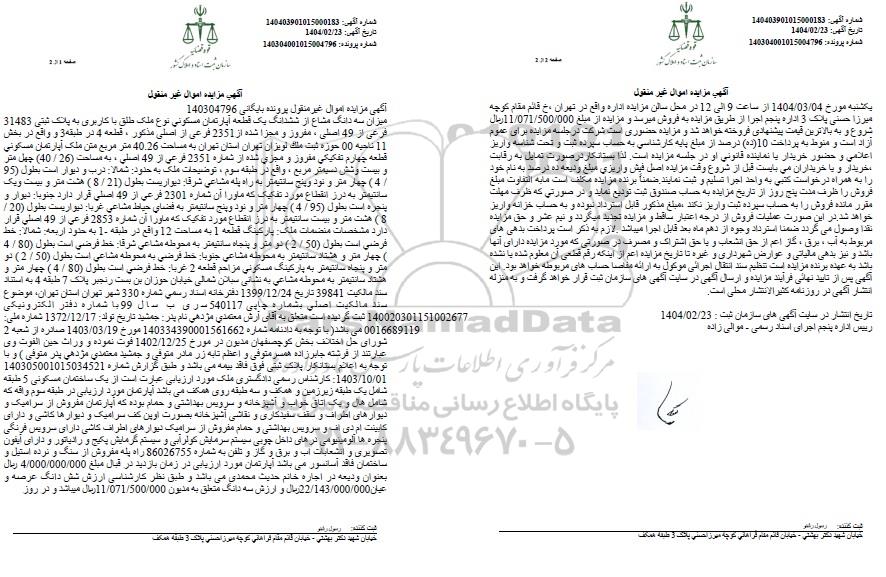 شماره آگهی: 140403901015000183
تاریخ آگهی: 1404/02/23
شماره پرونده: 140304001015004796
قوه قضائیه
سازمان ثبت اسناد و املاک کشور
صفحه 1 از 2
آگهي مزایده اموال غیر منقول
آگهي مزایده اموال غیرمنقول پرونده بایگاني 140304796
میزان سه دانگ مشاع از ششدانگ یک قطعه آپارتمان مسکوني نوع ملک طلق با کاربري به پلاک ثبتي 31483
فرعي از 49 اصلي ، مفروز و مجزا شده از2351 فرعي از اصلي مذکور ، قطعه 4 در طبقه3 و واقع در بخش
11 ناحیه 00 حوزه ثبت ملک لویزان تهران استان تهران به مساحت 40.26 متر مربع متن ملک آپارتمان مسکوني
قطعه چهارم تفکیکي مفروز و مجزي شده از شماره 2351 فرعي از 49 اصلي ، به مساحت (26 / 40) چهل متر
و بیست وشش دسیمتر مربع ، واقع در طبقه سوم ، توضیحات ملک به حدود: شمالا: درب و دیوار است بطول (95
/ 4 ) چهار متر و نود وپنج سانتیمتر به راه پله مشاعي شرقا: دیواریست بطول (21 / 8 ) هشت متر و بیست ویک
سانتیمتر به درز انقطاع مورد تفکیک که ماورا آن شماره 2301 فرعي از 49 اصلي قرار دارد جنوبا: دیوار و
پنجره است بطول (95 / 4 ) چهار متر و نود وپنج سانتیمتر به فضاي حیاط مشاعي غربا: دیواریست بطول (20 /
8 ) هشت متر و بیست سانتیمتر به درز انقطاع مورد تفکیک که ماورا آن شماره 2853 فرعي از 49 اصلي قرار
دارد مشخصات منضمات ملک: پارکینگ قطعه 1 به مساحت 12 واقع در طبقه -1 به حدود اربعه: شمالا: خط
فرضي است بطول (50 / 2 ) دو متر و پنجاه سانتیمتر به محوطه مشاعي شرقا: خط فرضي است بطول (80 / 4
) چهار متر و هشتاد سانتیمتر به محوطه مشاعي جنوبا: خط فرضي به محوطه مشاعي است بطول (50 / 2 ) دو
متر و پنجاه سانتیمتر به پارکینگ مسکوني مزاحم قطعه 2 غربا: خط فرضي است بطول (80 / 4 ) چهار متر و
هشتاد سانتیمتر به محوطه مشاعي به نشاني سبلان شمالي خیابان حوزان بن بست رنجبر پلاک 7 طبقه 4 به استناد
سند مالکیت 39841 تاریخ 1399/12/24 دفترخانه اسناد رسمي شماره 330 شهر تهران استان تهران، موضوع
سند مالکیت اصلي بشماره چاپي 540117 سري ب سال 99 با شماره دفتر الکترونیکي
140020301151002677 ثبت گردیده است متعلق به آقای آرش معتمدي مژدهي نام پدر: جمشید تاریخ تولد: 1372/12/17 شماره ملی:
0016689119 می باشد( با توجه به دادنامه شماره 140334390001561662 مورخ 1403/03/19 صادره از شعبه 2
شورای حل اختلاف بخش کوچصفهان مدیون در مورخ 1402/12/25 فوت نموده و وراث حین الفوت وی
عبارتند از فرشته جابرزاده همسرمتوفی و اعظم تابه زر مادر متوفی و جمشید معتمدي مژدهي پدر متوفی ) و با
توجه به اعلام بستانکار پلاک ثبتي فوق فاقد بیمه می باشد و طبق گزارش شماره 140305001015034521
1403/10/01: کارشناس رسمي دادگستري ملک مورد ارزیابي عبارت است از یک ساختمان مسکوني 5 طبقه
شامل یک طبقه زیرزمین و همکف و سه طبقه روي همکف می باشد آپارتمان مورد ارزیابي در طبقه سوم واقع که
شامل هال و یک اتاق خواب و آشپزخانه و سرویس بهداشتي و حمام بوده که آپارتمان مفروش از سرامیک و
دیوارهای اطراف و سقف سفیدکاری و نقاشي آشپزخانه بصورت اوپن کف سرامیک و دیوارها کاشي و دارای
کابینت ام دی اف و سرویس بهداشتي و حمام مفروش از سرامیک دیوارهای اطراف کاشي دارای سرویس فرنگي
پنجره ها آلومینیومي درهای داخل چوبي سیستم سرمایش کولرآبي و سیستم گرمایش پکیج و رادیاتور و دارای آیفون
تصویري و انشعابات آب و برق و گاز و تلفن به شماره 86026755 راه پله مفروش از سنگ و نرده استیل و
ساختمان فاقد آسانسور می باشد آپارتمان مورد ارزیابي در زمان بازدید در قبال مبلغ 4/000/000/000 ریال
بعنوان ودیعه در اجاره خانم حدیث محمدي می باشد و طبق نظر کارشناسي ارزش شش دانگ عرصه و
عیان22/143/000/000ریال و ارزش سه دانگ متعلق به مدیون 11/071/500/000ریال میباشد و در روز
ثبت کننده: رسول رشنو
خیابان شهید دکتر بهشتي - خیابان قائم مقام فراهاني کوچه میرزاحسني پلاک 3 طبقه همکف
شماره آگهی: 140403901015000183
تاریخ آگهی: 1404/02/23
شماره پرونده: 140304001015004796
قوه قضائیه
سازمان ثبت اسناد و املاک کشور
صفحه 2 از 2
آگهي مزایده اموال غیر منقول
یکشنبه مورخ 1404/03/04 از ساعت 9 الی 12 در محل سالن مزایده اداره واقع در تهران ،خ قائم مقام کوچه
میرزا حسنی پلاک 3 اداره پنجم اجرا از طریق مزایده به فروش میرسد و مزایده از مبلغ 11/071/500/000ریال
شروع و به بالاترین قیمت پیشنهادی فروخته خواهد شد و مزایده حضوری است شرکت درجلسه مزایده برای عموم
آزاد است و منوط به پرداخت 10(ده) درصد از مبلغ پایه کارشناسی به حساب سپرده ثبت و تحت شناسه واریز
اعلامی و حضور خریدار یا نماینده قانونی او در جلسه مزایده است. لذا بستانکاردرصورت تمایل به رقابت
،خریدار و یا خریداران می بایست قبل از شروع وقت مزایده اصل فیش واریزی مبلغ ودیعه ده درصد به نام خود
را به همراه درخواست کتبی به واحد اجرا تسلیم و ثبت نمایند.ضمنا برنده مزایده مکلف است مابه التفاوت مبلغ
فروش را ظرف مدت پنج روز از تاریخ مزایده به حساب صندوق ثبت تودیع نماید و در صورتی که ظرف مهلت
مقرر مانده فروش را به حساب سپرده ثبت واریز نکند ،مبلغ مذکور قابل استرداد نبوده و به حساب خزانه واریز
خواهد شد.در این صورت عملیات فروش از درجه اعتبار ساقط و مزایده تجدید میگردد و نیم عشر و حق مزایده
نقدا وصول می گردد ضمنا استرداد وجوه از دهم ماه بعد قابل اجرا میباشد .لازم به ذکر است پرداخت بدهی های
مربوط به آب ، برق ، گاز اعم از حق انشعاب و یا حق اشتراک و مصرف در صورتی که مورد مزایده دارای آنها
باشد و نیز بدهی مالیاتی و عوارض شهرداری و غیره تا تاریخ مزایده اعم از اینکه رقم قطعی آن معلوم شده یا نشده
باشد به عهده برنده مزایده است تنظیم سند انتقال اجرائی موکول به ارائه مفاصا حساب های مربوطه خواهد بود. این
آگهی پس از تایید نهائی فرآیند مزایده و ارسال آگهی در سایت آگهی های سازمان ثبت قرار خواهد گرفت و به منزله
انتشار آگهی در روزنامه کثیرالانتشار محلی است.
تاریخ انتشار در سایت آگهی های سازمان ثبت : 1404/02/23
رییس اداره پنجم اجرای اسناد رسمی - موالی زاده
ثبت کننده: رسول رشنو
خیابان شهید دکتر بهشتي - خیابان قائم مقام فراهاني کوچه میرزاحسني پلاک 3 طبقه همکف
مرکز فرآوری اطلاعات پارس نماد
پایگاه اطلاع رسانی مناقصه
۰۲۱-۸۸۳۴۹۶۷۰-۵